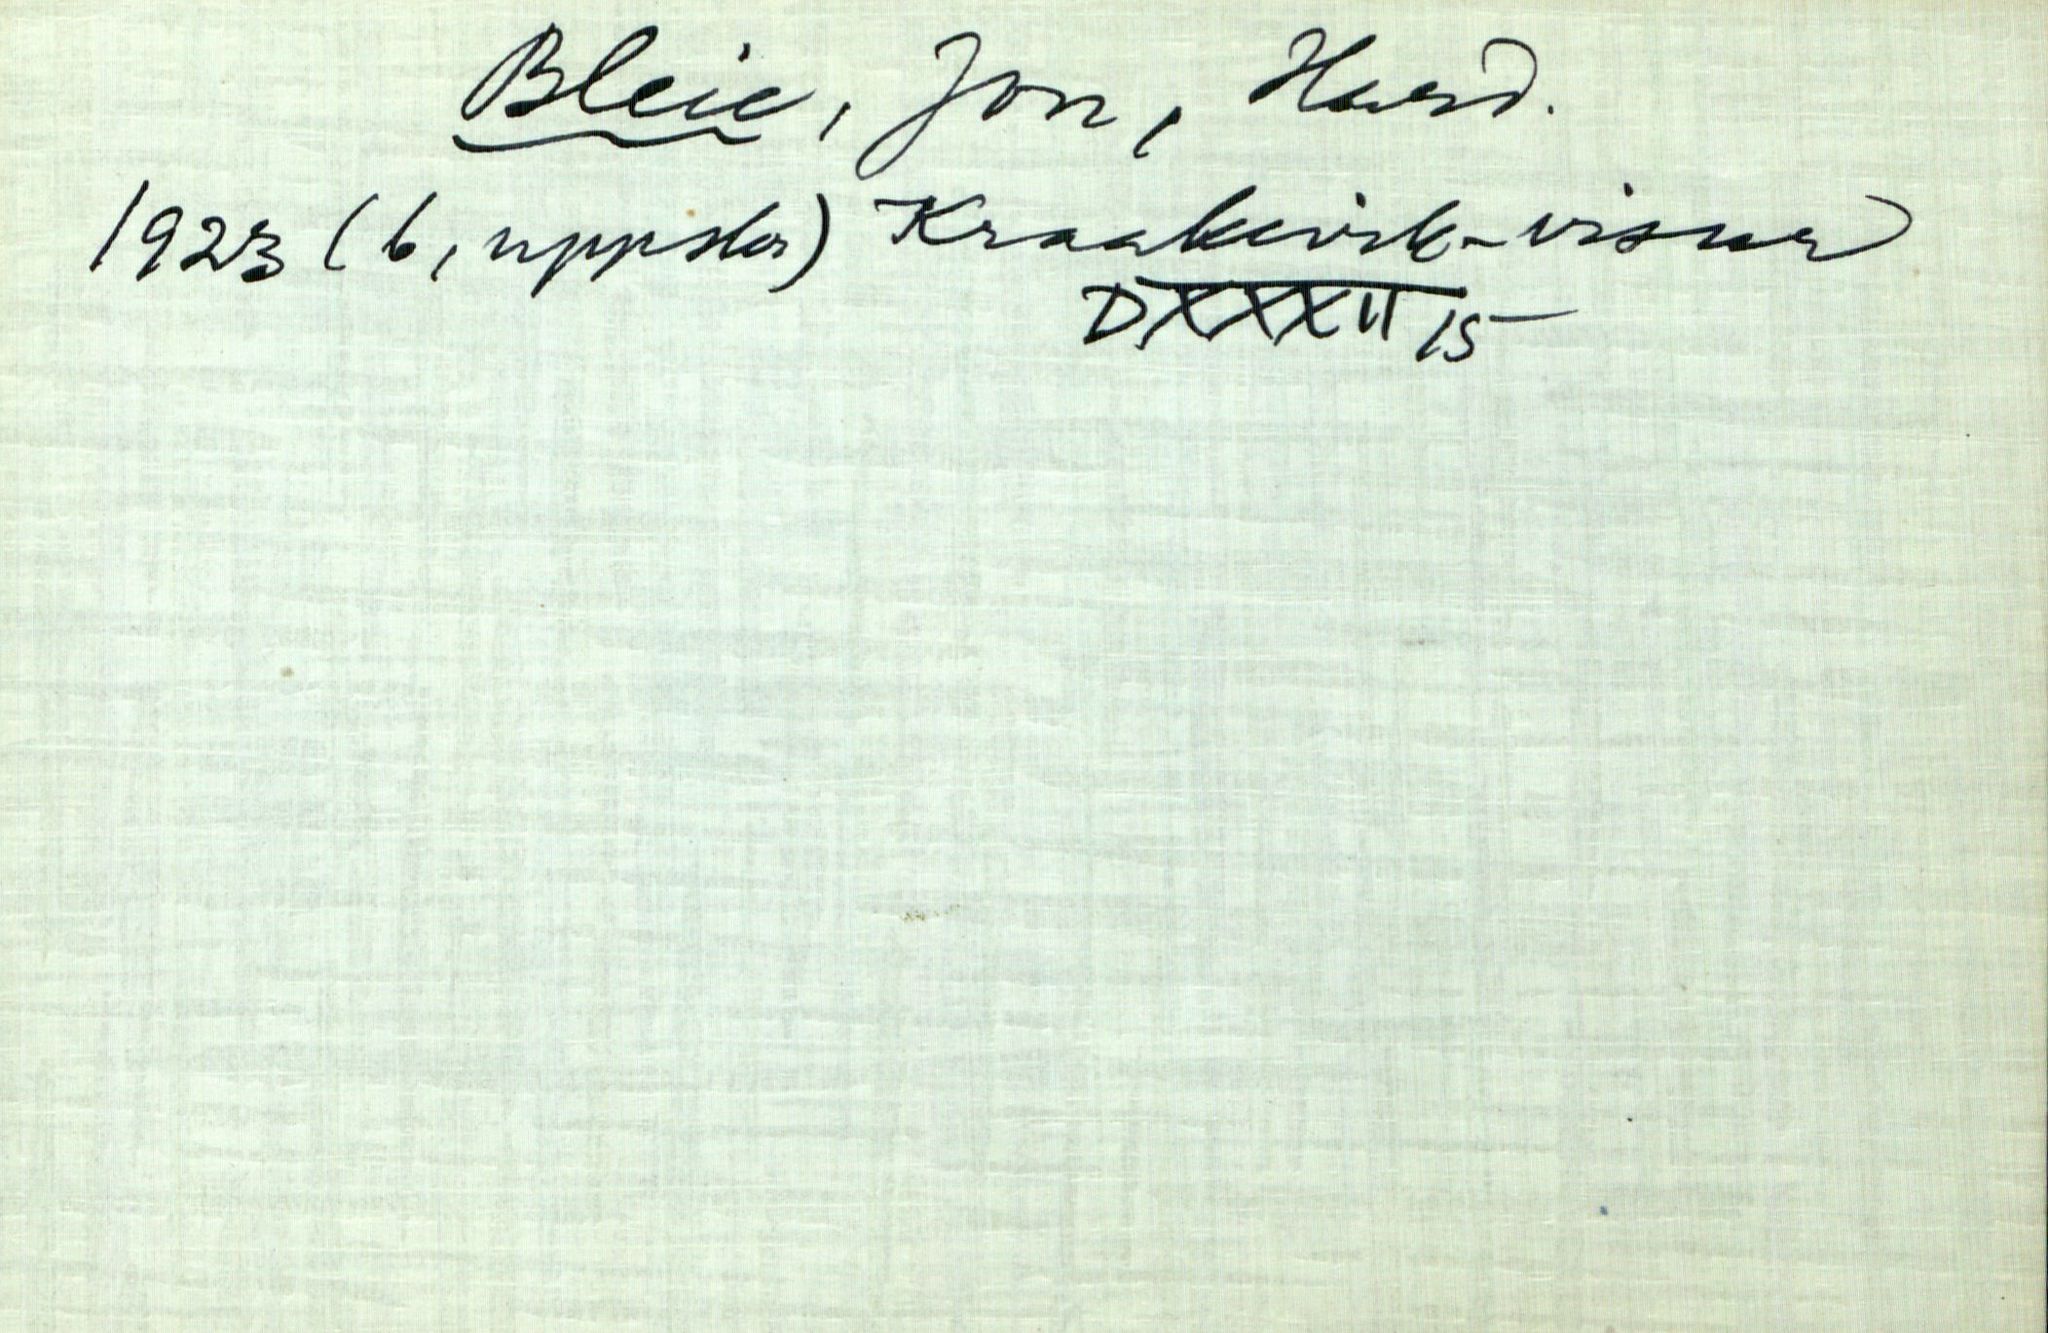 Bleie, Jon, Hard.
1923 (6, uppskr) Kraakevisk-visur
DXXXVI 15